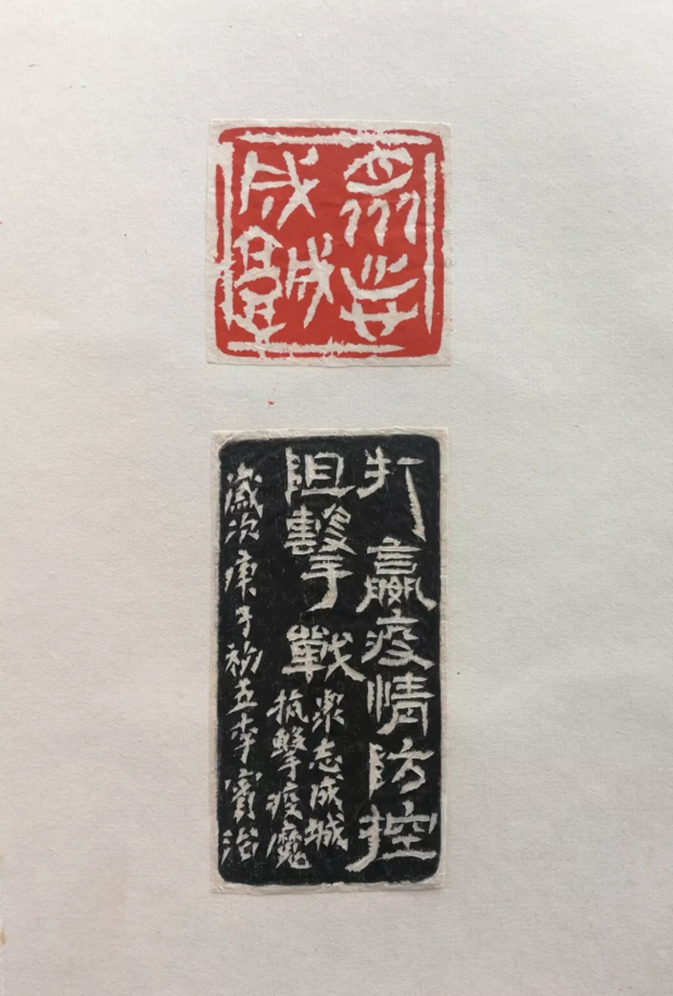 众志成城
打赢疫情防控
阻擊手戰
衆志成城
抗擊疫魔
歲次庚子初五李賓治